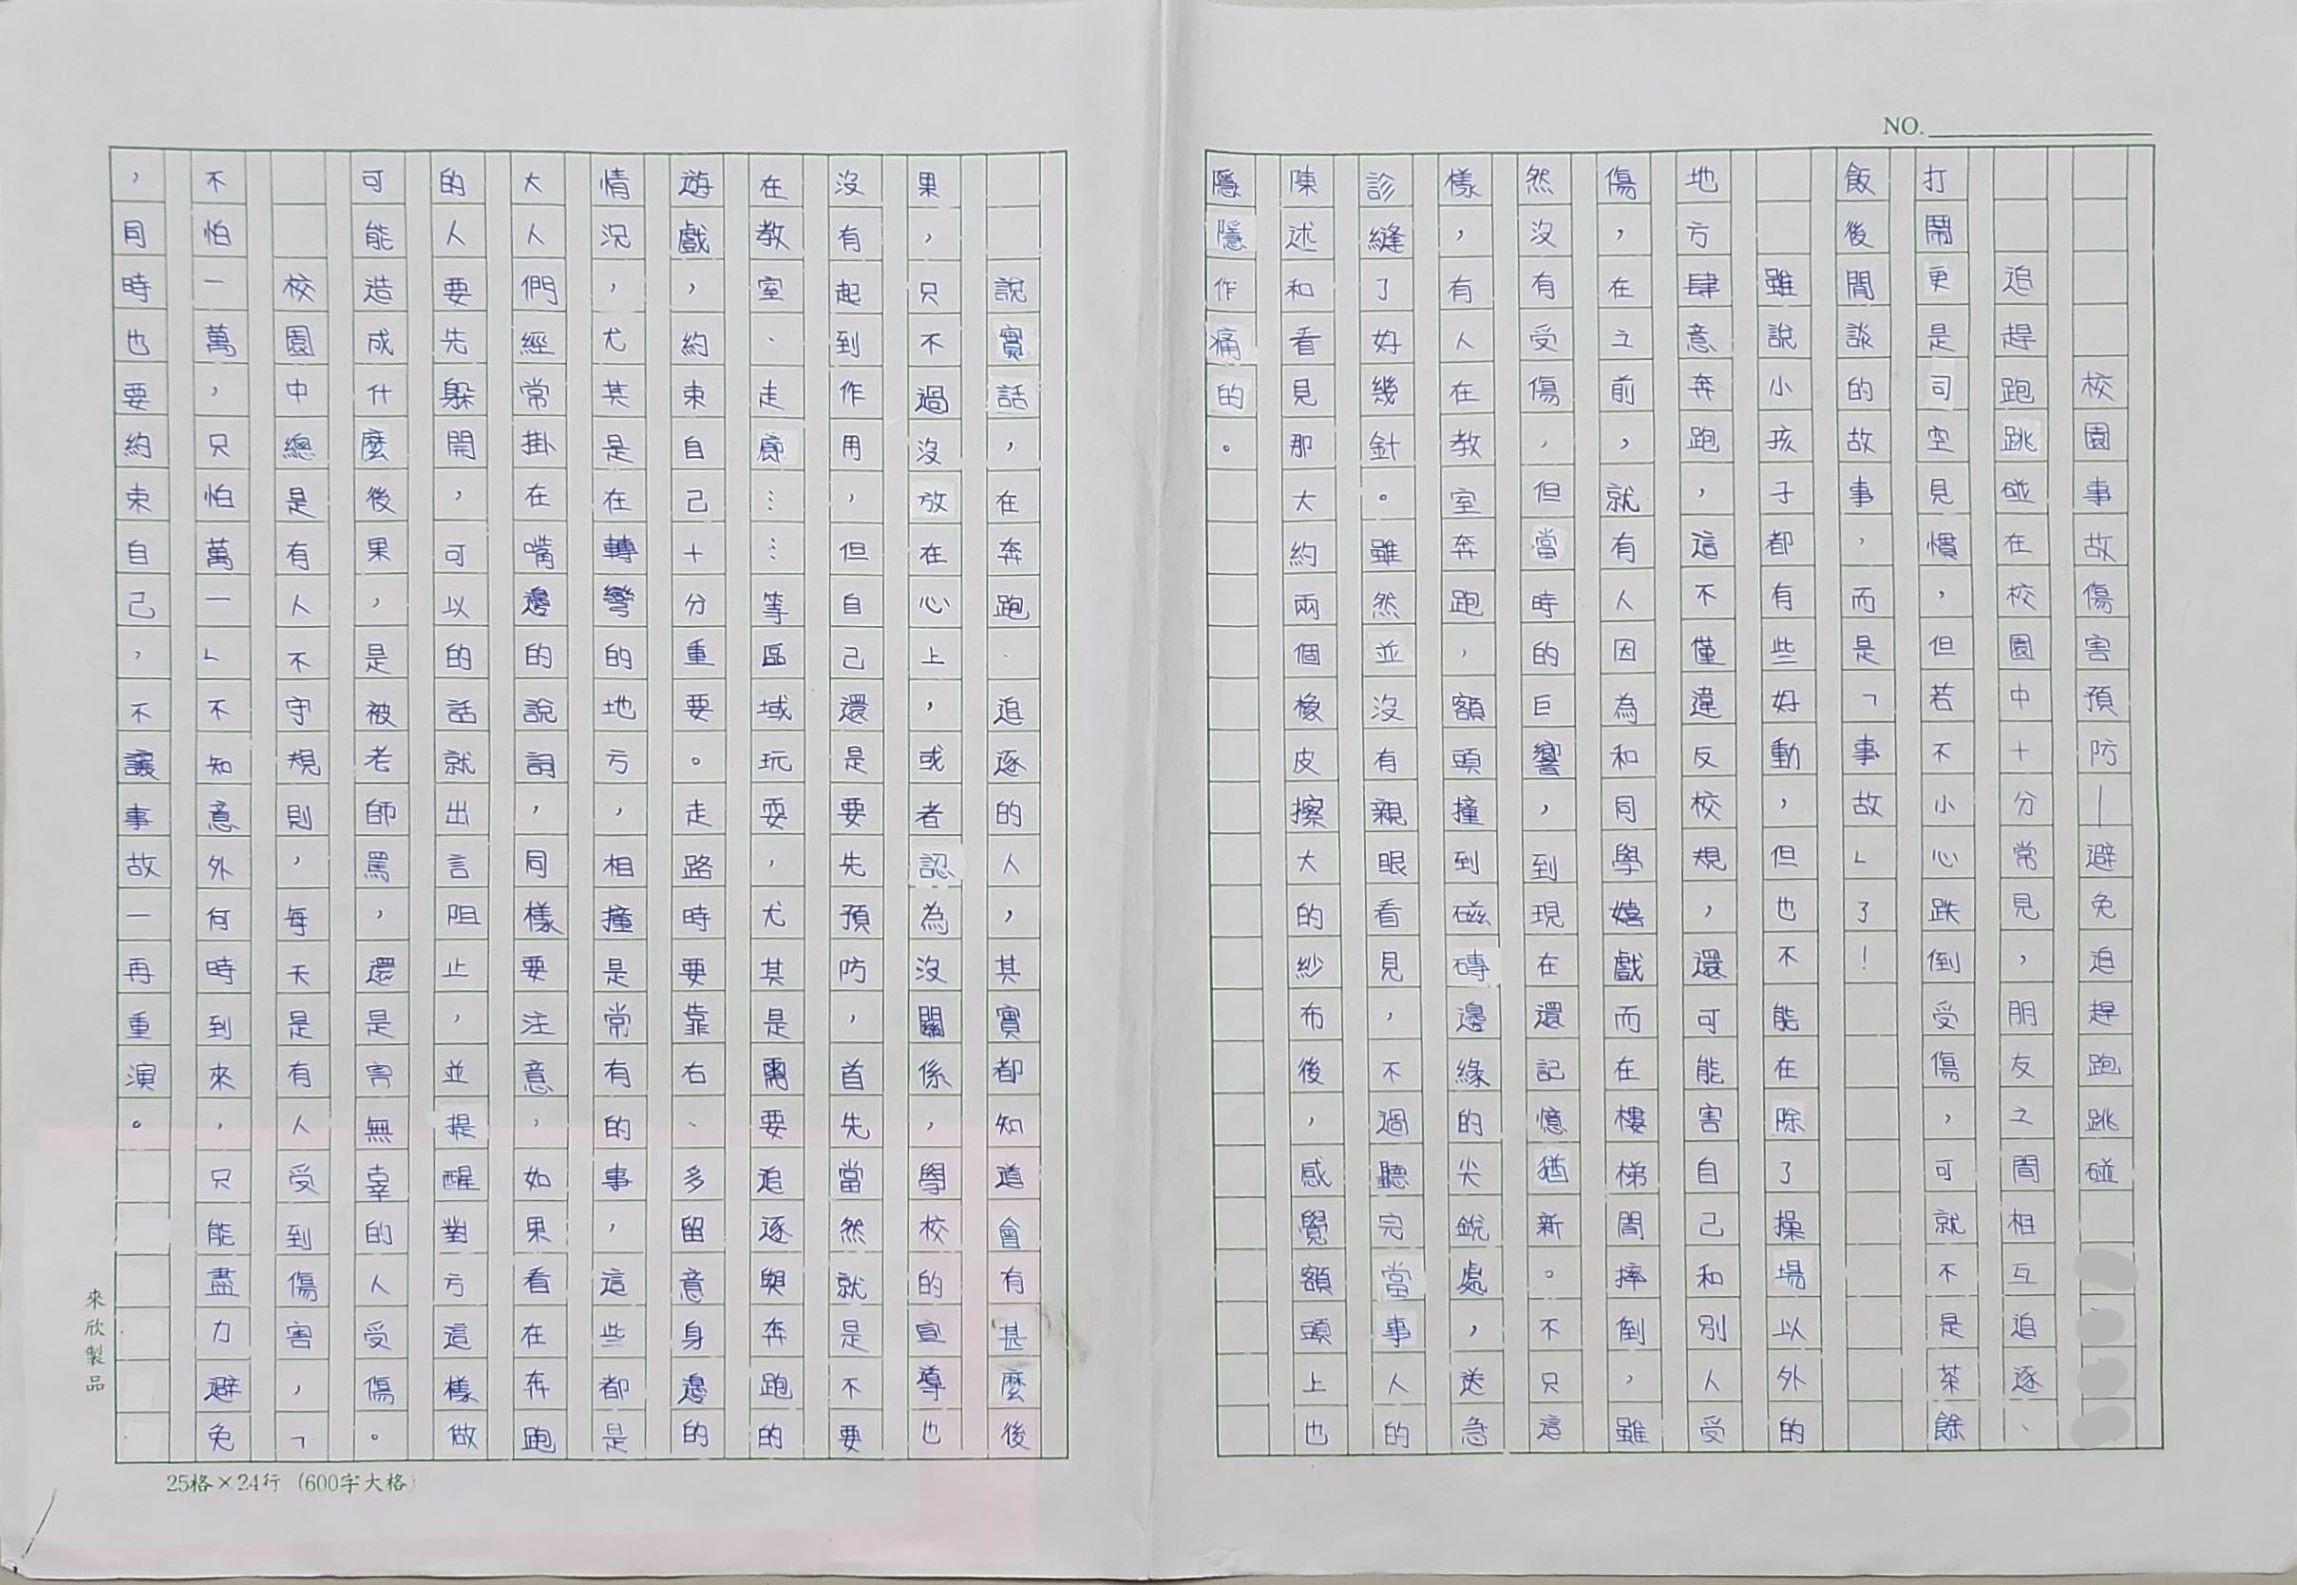 NO.
校園事故傷害預防—避免追趕跑跳碰
追趕跑跳碰在校園中十分常見，朋友之間相互追逐、
打鬧更是司空見慣，但若不小心跌倒受傷，可就不是茶餘
飯後閒談的故事，而是「事故」了！
雖說小孩子都有些好動，但也不能在除了操場以外的
地方肆意奔跑，這不僅違反校規，還可能害自己和別人受
傷，在之前，就有人因為和同學嬉戲而在樓梯間摔倒，雖
然沒有受傷，但當時的巨響，到現在還記憶猶新。不只這
樣，有人在教室奔跑，額頭撞到磁磚邊緣的尖銳處，送急
診縫了好幾針。雖然並沒有親眼看見，不過聽完當事人的
陳述和看見那大約兩個橡皮擦大的紗布後，感覺額頭上也
隱隱作痛的。
說實話，在奔跑、追逐的人，其實都知道會有甚麼後
果，只不過沒放在心上，或者認為沒關係，學校的宣導也
沒有起到作用，但自己還是要先預防，首先當然就是不要
在教室、走廊……等區域玩耍，尤其是需要追逐與奔跑的
遊戲，約束自己十分重要。走路時要靠右、多留意身邊的
情況，尤其是在轉彎的地方，相撞是常有的事，這些都是
大人們經常掛在嘴邊的說詞，同樣要注意，如果看在奔跑
的人要先躲開，可以的話就出言阻止，並提醒對方這樣做
可能造成什麼後果，是被老師罵，還是害無辜的人受傷。
校園中總是有人不守規則，每天是有人受到傷害，「
不怕一萬，只怕萬一」不知意外何時到來，只能盡力避免
，同時也要約束自己，不讓事故一再重演。
來欣製品
25格×24行（600字大格）